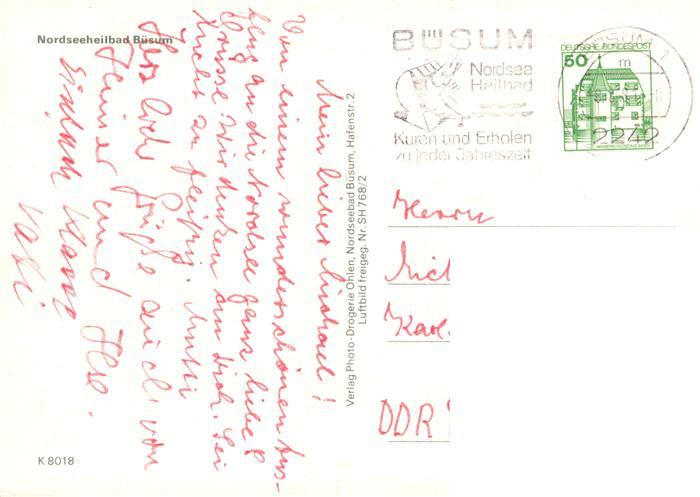 Nordseeheilbad Büsum
Mein lieber Michael!
Von einem wunderschönen Aus-
flug an die Nordsee ganz liebe
Grüsse. Wir denken an Dich. Sei
nicht zu fleißig. Mutti
Herzliche Grüße auch von
Heiner und Ilse.
Einfach Klasse
Vati
K 8018
Verlag Photo-Drogerie Ohlen, Nordseebad Büsum, Hafenstr. 2
Luftbild freigeg. Nr. SH 768/2
BÜSUM
Nordsee
Heilbad
Kuren und Erholen
zu jeder Jahreszeit
DEUTSCHE BUNDESPOST
50
BÜSUM 1
m
2242
Herrn
Mich
Karl-
DDR